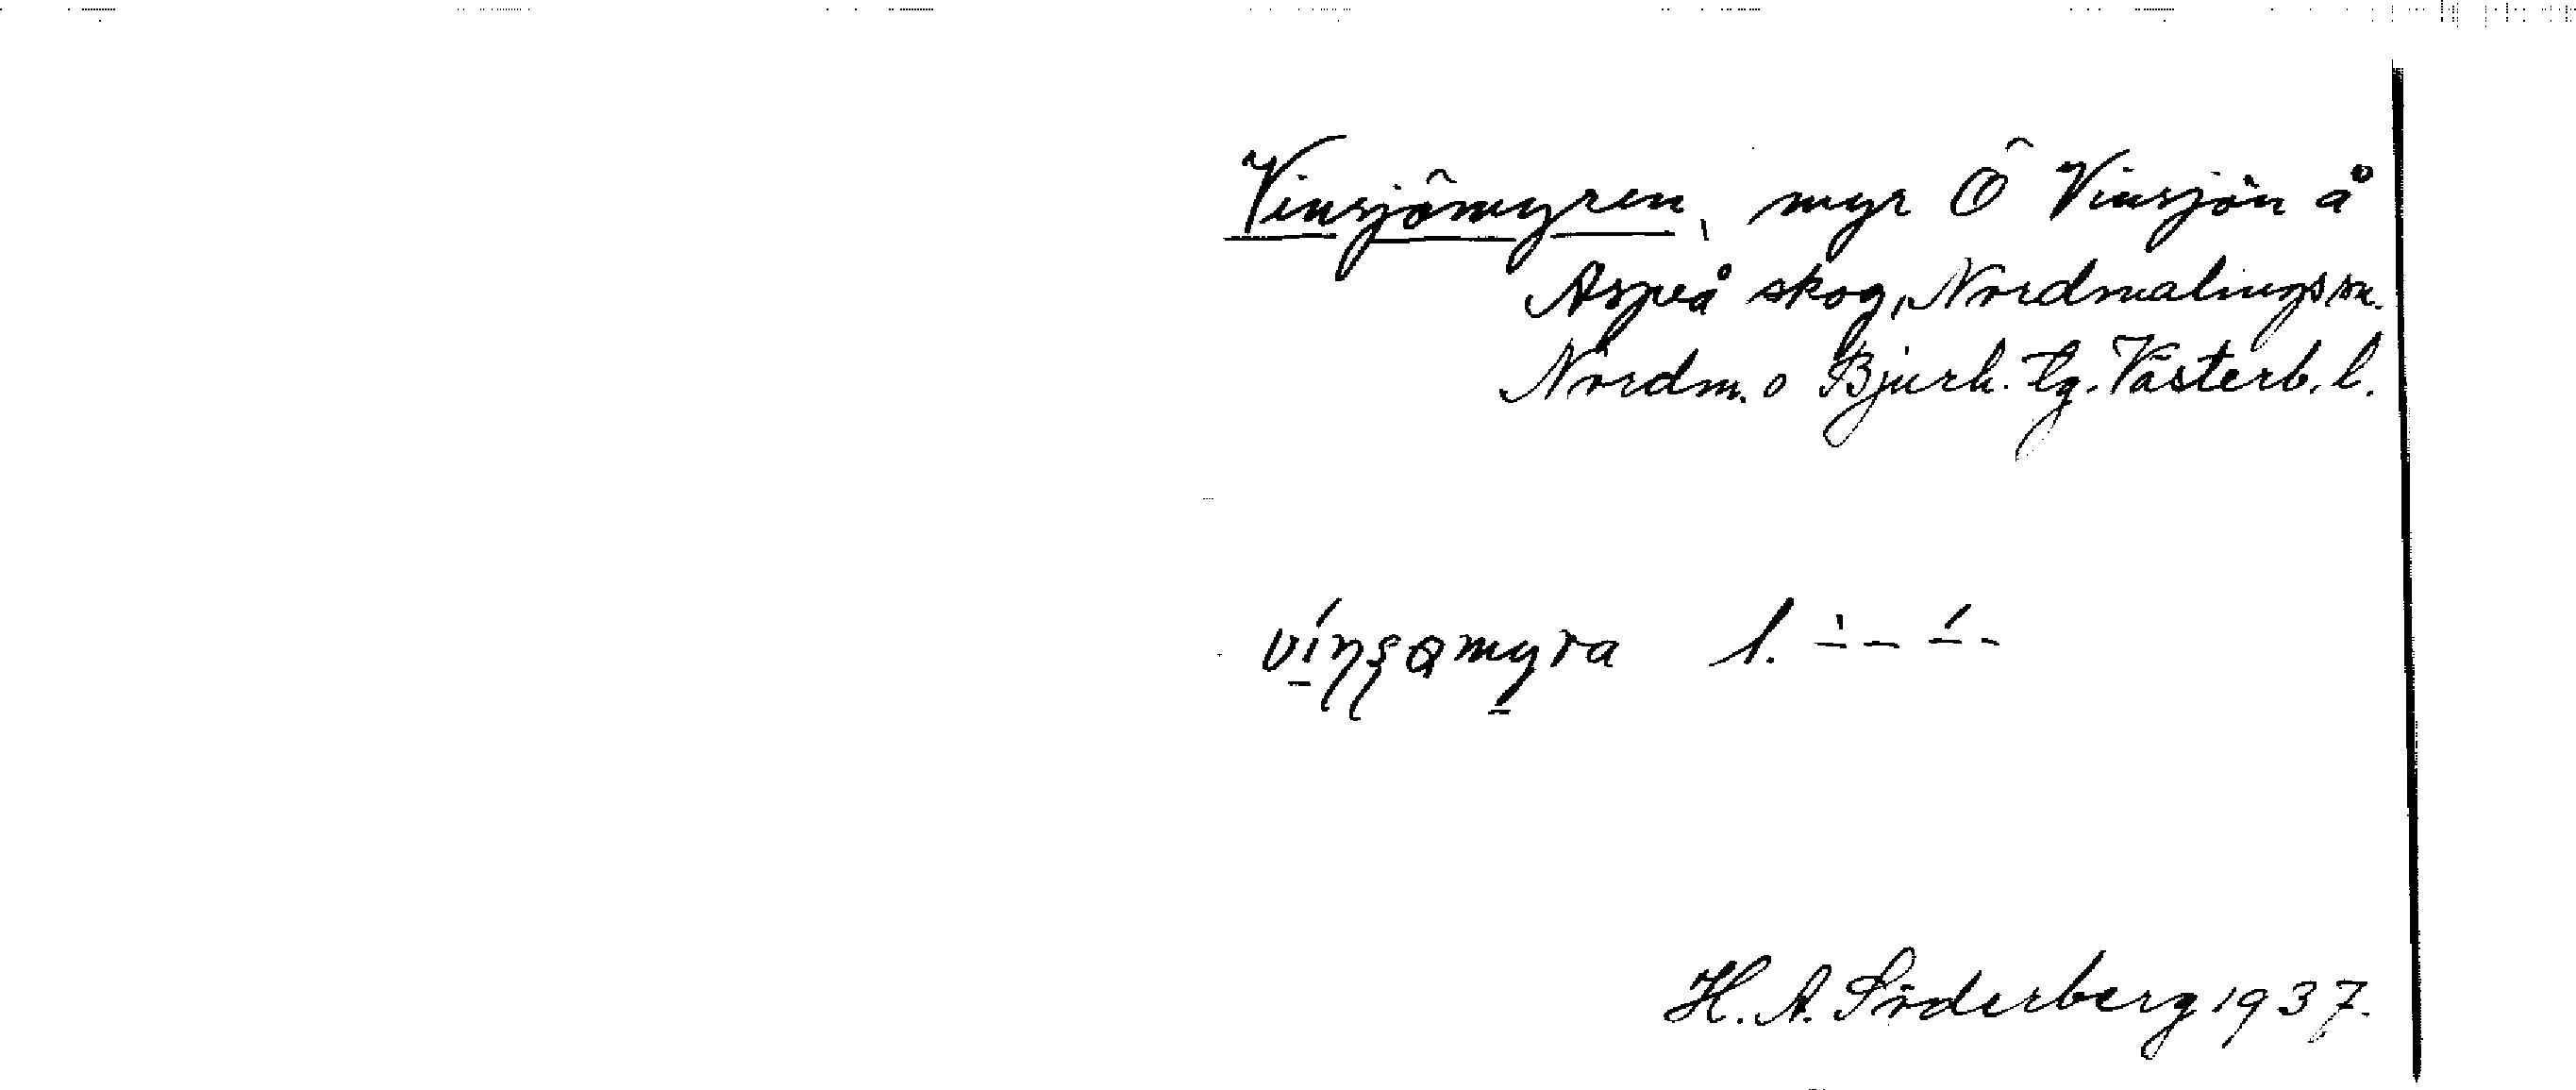 Vinsjömyren, myr Ö Vinsjön å
Aspeå skog, Nordmalings sn.
Nordm. o Bjurh. tg. Västerb. l.
l.
H. A. Söderberg 1937.